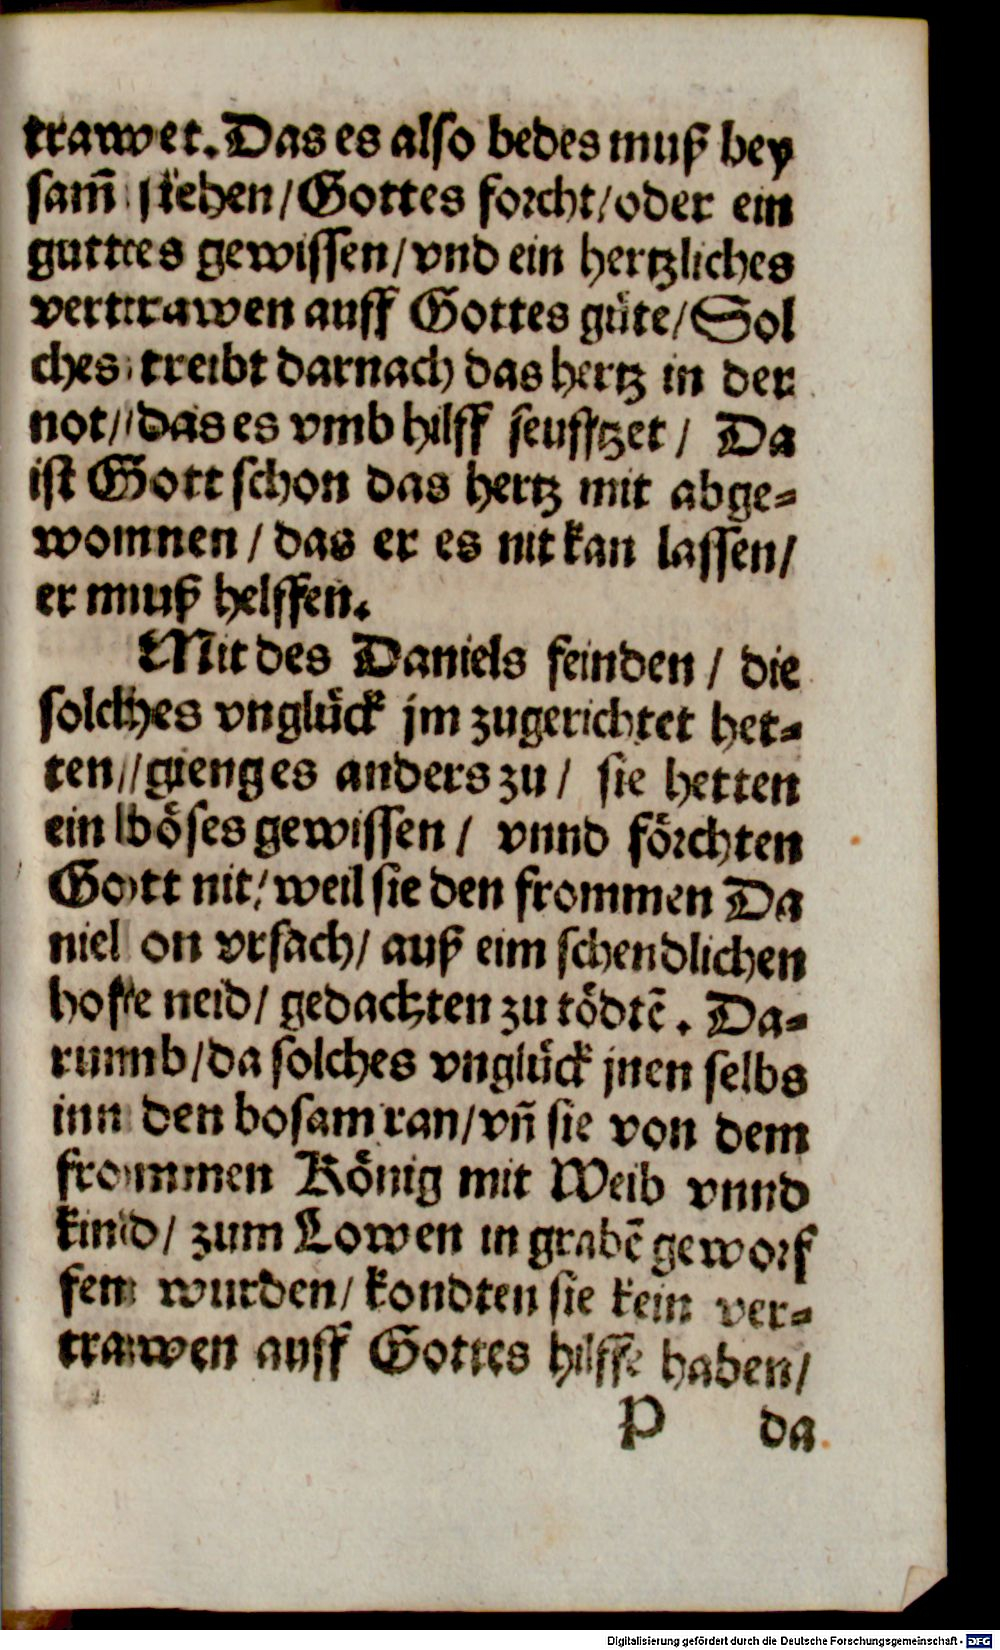 trawet. Das es also bedes muß bey
sam̃ stehen / Gottes forcht / oder ein
guttes gewissen / vnd ein hertzliches
vertrawen auff Gottes güte / Sol
ches treibt darnach das hertz in der
not / das es vmb hilff seufftzet / Da
ist Gott schon das hertz mit abge-
womnen / das er es nit kan lassen /
er muß helffen.
Mit des Daniels feinden / die
solches vnglück jm zugerichtet het-
ten / gieng es anders zu / sie hetten
ein böses gewissen / vnnd förchten
Gott nit / weil sie den frommen Da
niel on vrsach / auß eim schendlichen
hoffe neid / gedachten zu tödtẽ. Da-
rumb / da solches vnglück jnen selbs
inn den bosam ran / vñ sie von dem
frommen König mit Weib vnnd
kind / zum Lowen in grabẽ geworf
fen wurden / kondten sie kein ver-
trawen auff Gottes hilffe haben /
P da
Digitalisierung gefördert durch die Deutsche Forschungsgemeinschaft - DFG